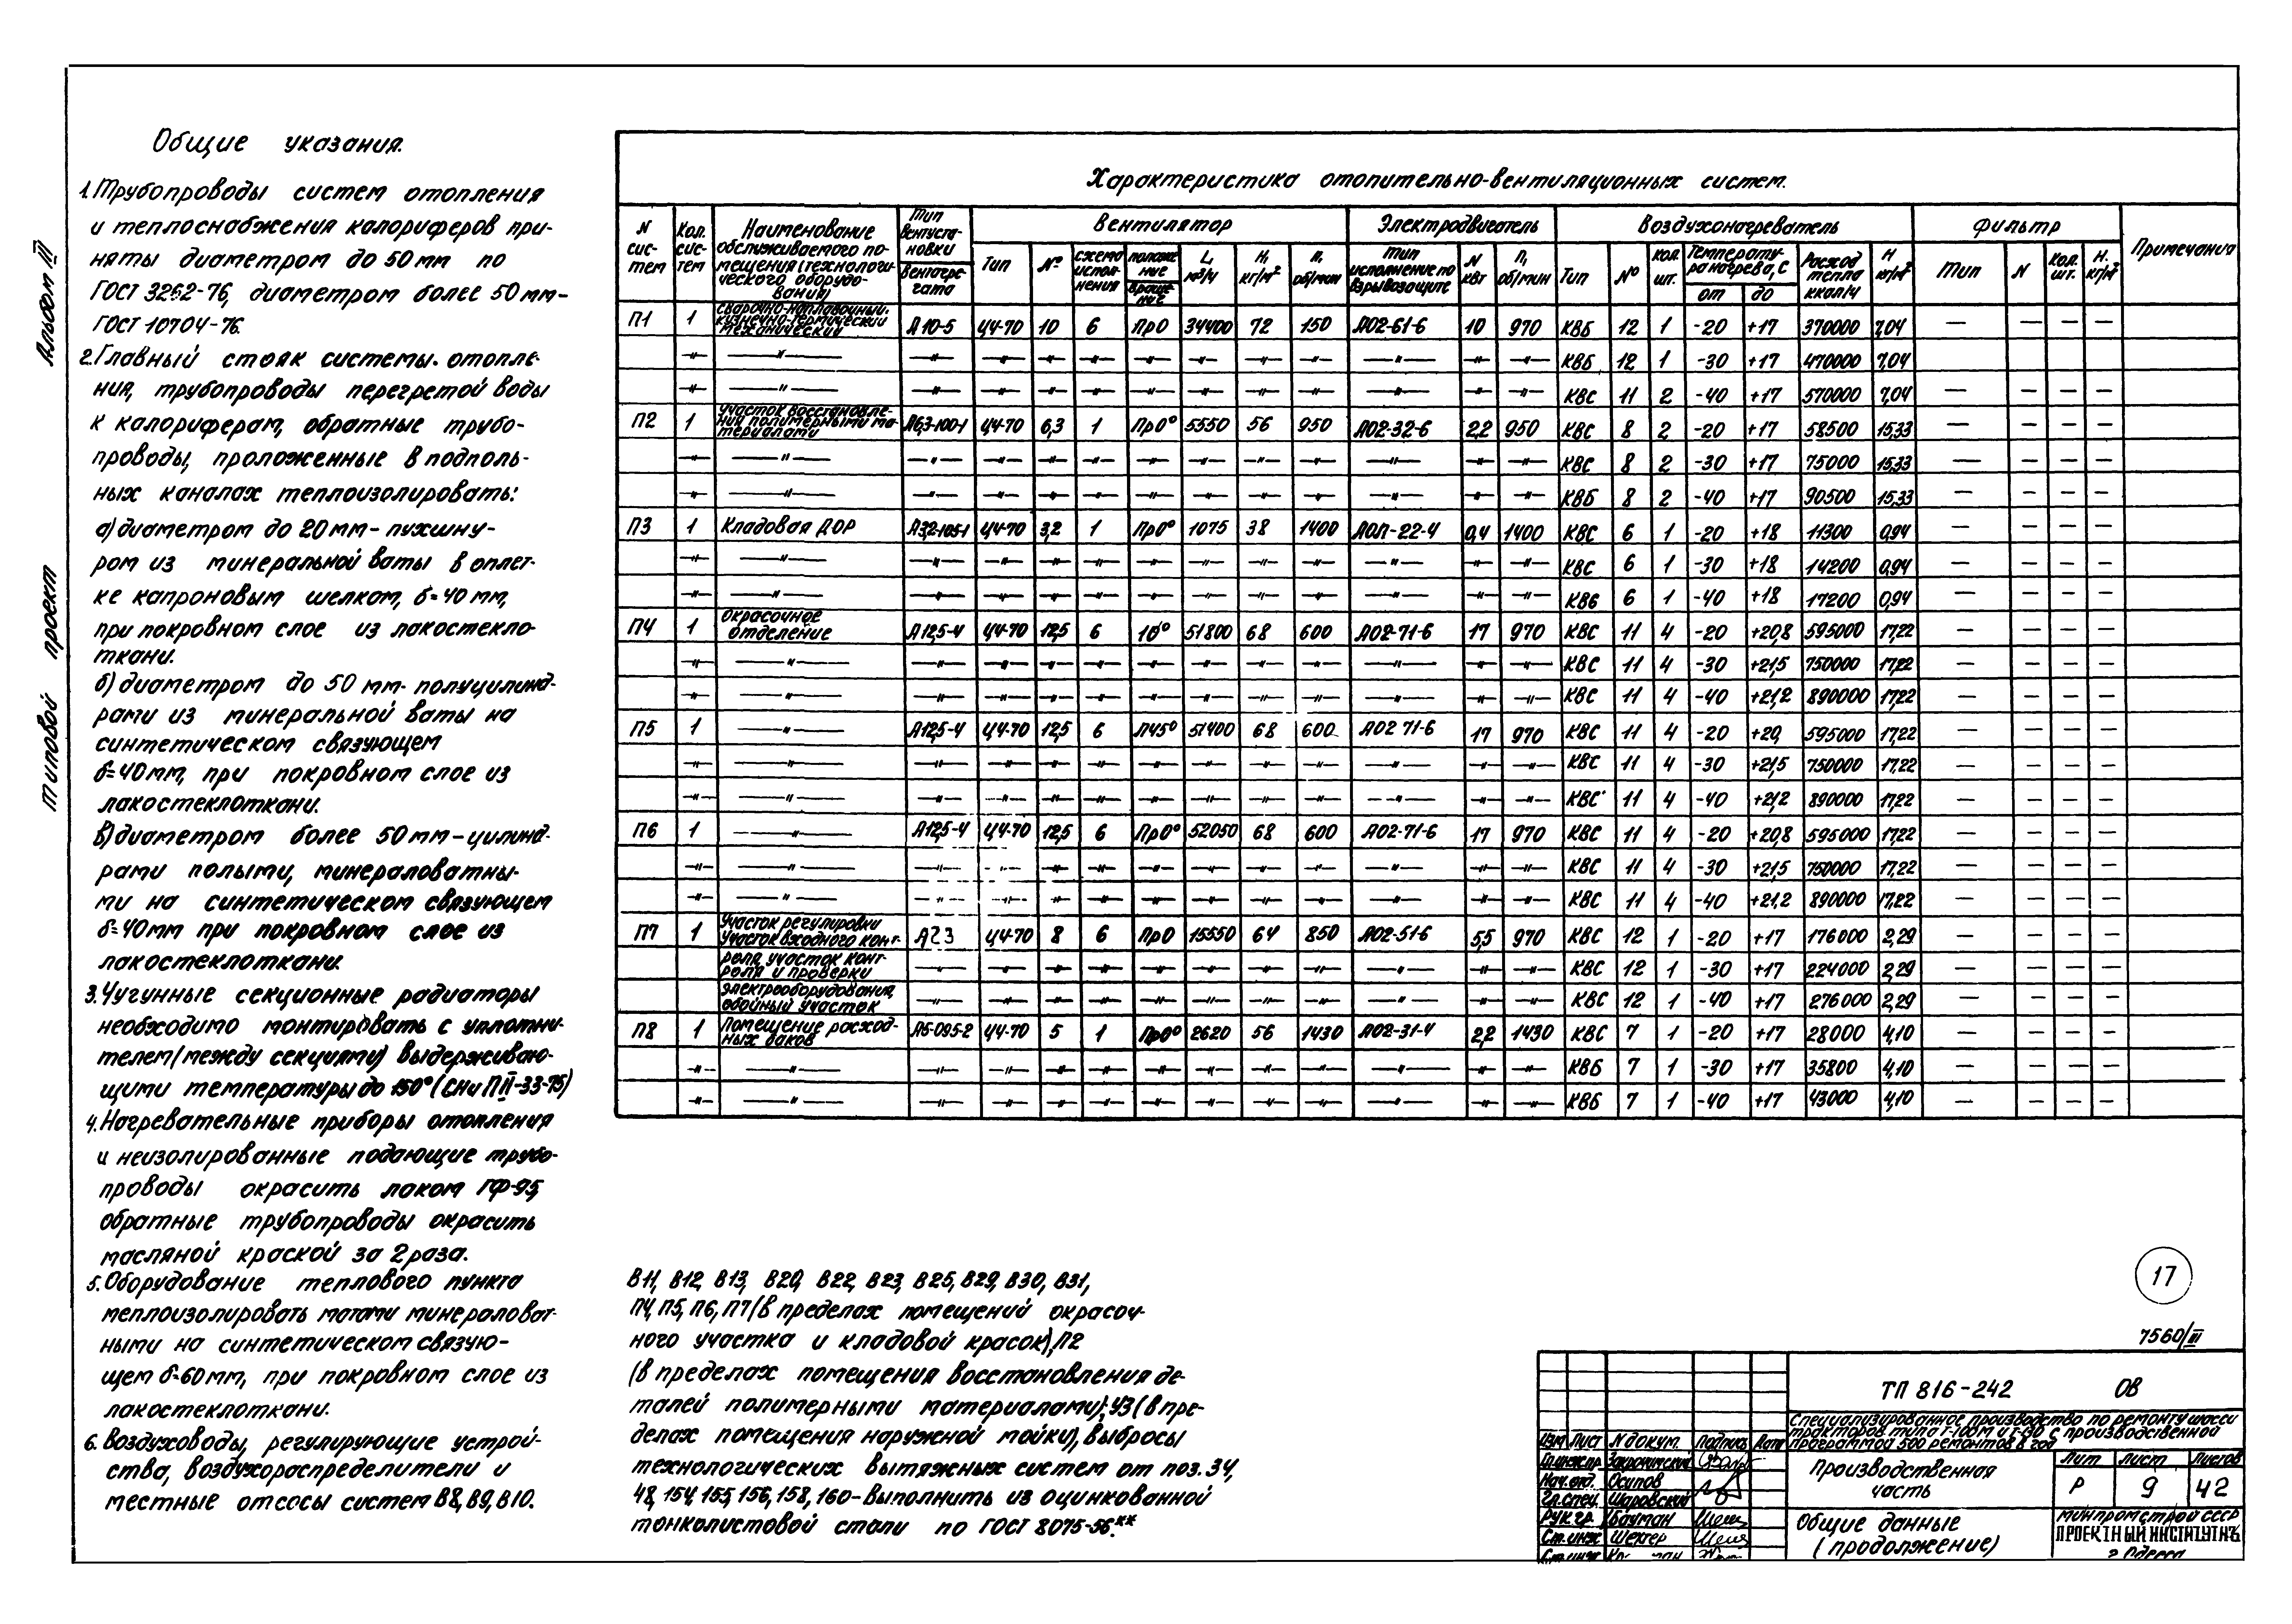 Альбом III
типовой проект
Общие указания.
1. Трубопроводы систем отопления
и теплоснабжения калориферов при-
няты диаметром до 50мм по
ГОСТ 3262-76, диаметром более 50мм-
ГОСТ 10704-76.
2. Главный стояк системы. отопле-
ния, трубопроводы перегретой воды
к калориферам, обратные трубо-
проводы, проложенные в подполь-
ных каналах теплоизолировать:
а) диаметром до 20мм- пухшну-
ром из минеральной ваты в оплет-
ке капроновым шелком, б=40мм,
при покровном слое из лакостекло-
ткани.
б) диаметром до 50 мм- полуцилинд-
рами из минеральной ваты на
синтетическом связующем
б=40мм, при покровном слое из
лакостеклоткани.
в) диаметром более 50мм-цилинд-
рами полыми, минераловатны-
ми на синтетическом связующем
б=40мм при покровном слое из
лакостеклоткани.
3. Чугунные секционные радиаторы
необходимо монтировать с уплотни-
телем (между секциями) выдерживаю-
щими температуры до 150° (СНиП II-33-75)
4. Нагревательные приборы отопления
и неизолированные подающие трубо-
проводы окрасить лаком ГФ-95,
обратные трубопроводы окрасить
масляной краской за 2 раза.
5. Оборудование теплового пункта
теплоизолировать матами минераловат-
ными на синтетическом связую-
щем б=60мм, при покровном слое из
лакостеклоткани.
6. Воздуховоды, регулирующие устрой-
ства, воздухораспределители и
местные отсосы систем В8, В9, В10.
В11, В12, В13, В20, В22, В23, В25, В29, В30, В31,
П4, П5, П6, П7 (в пределах помещений окрасоч-
ного участка и кладовой красок), П2
(в пределах помещения восстановления де-
талей полимерными материалами); У3 (в пре-
делах помещения наружной мойки), выбросы
технологических вытяжных систем от поз. 34,
48, 154, 155, 156, 158, 160-выполнить из оцинкованной
тонколистовой стали по ГОСТ 8075-56.**
Характеристика отопительно-вентиляционных систем.
N систем | Кол. систем | Наименование обслуживаемого помещения (технологического оборудования) | Тип вентустановки вентагрегата | Вентилятор | Электродвигатель | Воздухонагреватель | Фильтр | Примечания
Тип | № | схема исполнения | положение вращения | L, м³/ч | H, кг/м² | n, об/мин | Тип исполнение по взрывозащите | N квт | n, об/мин | Тип | № | кол. шт. | Температура нагрева, С от до | Расход тепла ккал/ч | H кг/м² | Тип | N | Кол. шт. | H. кг/м²
П1 1 сварочно-наплавочный, кузнечно-термический механический А10-5 Ц4-70 10 6 Пр0 34400 72 150 АО2-61-6 10 970 КВБ 12 1 -20 +17 370000 7,04 — — — —
-"- -"- -"- -"- -"- -"- -"- -"- -"- -"- -"- -"- -"- КВБ 12 1 -30 +17 470000 7,04
-"- -"- -"- -"- -"- -"- -"- -"- -"- -"- -"- -"- -"- КВС 11 2 -40 +17 570000 7,04 — — — —
П2 1 участок восстановления полимерными материалами А6,3-100-1 Ц4-70 6,3 1 Пр0° 5550 56 950 АО2-32-6 2,2 950 КВС 8 2 -20 +17 58500 15,33 — — — —
-"- -"- -"- -"- -"- -"- -"- -"- -"- -"- -"- -"- -"- КВС 8 2 -30 +17 75000 15,33 — — — —
-"- -"- -"- -"- -"- -"- -"- -"- -"- -"- -"- -"- -"- КВБ 8 2 -40 +17 90500 15,33 — — — —
П3 1 Кладовая ДОР А3,2-105-1 Ц4-70 3,2 1 Пр0° 1075 38 1400 АОЛ-22-4 0,4 1400 КВС 6 1 -20 +18 11300 0,94 — — — —
-"- -"- -"- -"- -"- -"- -"- -"- -"- -"- -"- -"- -"- КВС 6 1 -30 +18 14200 0,94 — — — —
-"- -"- -"- -"- -"- -"- -"- -"- -"- -"- -"- -"- -"- КВБ 6 1 -40 +18 17200 0,94 — — — —
П4 1 Окрасочное отделение А12,5-4 Ц4-70 12,5 6 10° 51800 68 600 АО2-71-6 17 970 КВС 11 4 -20 +20,8 595000 17,22 — — — —
-"- -"- -"- -"- -"- -"- -"- -"- -"- -"- -"- -"- -"- КВС 11 4 -30 +21,5 750000 17,22 — — — —
-"- -"- -"- -"- -"- -"- -"- -"- -"- -"- -"- -"- -"- КВС 11 4 -40 +21,2 890000 17,22 — — — —
П5 1 -"- А12,5-4 Ц4-70 12,5 6 Л45° 51400 68 600 АО2 71-6 17 970 КВС 11 4 -20 +20, 595000 17,22 — — — —
-"- -"- -"- -"- -"- -"- -"- -"- -"- -"- -"- -"- -"- КВС 11 4 -30 +21,5 750000 17,22 — — — —
-"- -"- -"- -"- -"- -"- -"- -"- -"- -"- -"- -"- -"- КВС 11 4 -40 +21,2 890000 17,22 — — — —
П6 1 -"- А12,5-4 Ц4-70 12,5 6 Пр0° 52050 68 600 АО2-71-6 17 970 КВС 11 4 -20 +20,8 595000 17,22 — — — —
-"- -"- -"- -"- -"- -"- -"- -"- -"- -"- -"- -"- -"- КВС 11 4 -30 +21,5 750000 17,22 — — — —
-"- -"- -"- -"- -"- -"- -"- -"- -"- -"- -"- -"- -"- КВС 11 4 -40 +21,2 890000 17,22 — — — —
П7 1 Участок регулировки Участок входного конт- А23 Ц4-70 8 6 Пр0 15550 64 850 АО2-51-6 5,5 970 КВС 12 1 -20 +17 176000 2,29 — — — —
роля, участок контроля и проверки -"- -"- -"- -"- -"- -"- -"- -"- -"- -"- -"- КВС 12 1 -30 +17 224000 2,29 — — — —
электрооборудования, обойный участок -"- -"- -"- -"- -"- -"- -"- -"- -"- -"- -"- КВС 12 1 -40 +17 276000 2,29 — — — —
П8 1 Помещение расходных баков А5-095-2 Ц4-70 5 1 Пр0° 2620 56 1430 АО2-31-4 2,2 1430 КВС 7 1 -20 +17 28000 4,10 — — — —
-"- -"- -"- -"- -"- -"- -"- -"- -"- -"- -"- -"- -"- КВБ 7 1 -30 +17 35800 4,10 — — — —
-"- -"- -"- -"- -"- -"- -"- -"- -"- -"- -"- -"- -"- КВБ 7 1 -40 +17 43000 4,10 — — — —
17
7560/III
ТП 816-242 ОВ
Специализированное производство по ремонту шасси
тракторов типа Т-100М и Т-130 с производственной
программой 500 ремонтов в год
Изм Лист N докум. Подпись Дата
Гл.инж.пр. Закрочимский
Нач.отд. Осипов
Гл.спец. Шаровский
Рук.гр. Бауман
Ст.инж Шехтер
Ст.инж
Производственная
часть
Лит Лист Листов
Р 9 42
Общие данные
(продолжение)
Минпромстрой СССР
ПРОЕКТНЫЙ ИНСТИТУТ №
г. Одесса